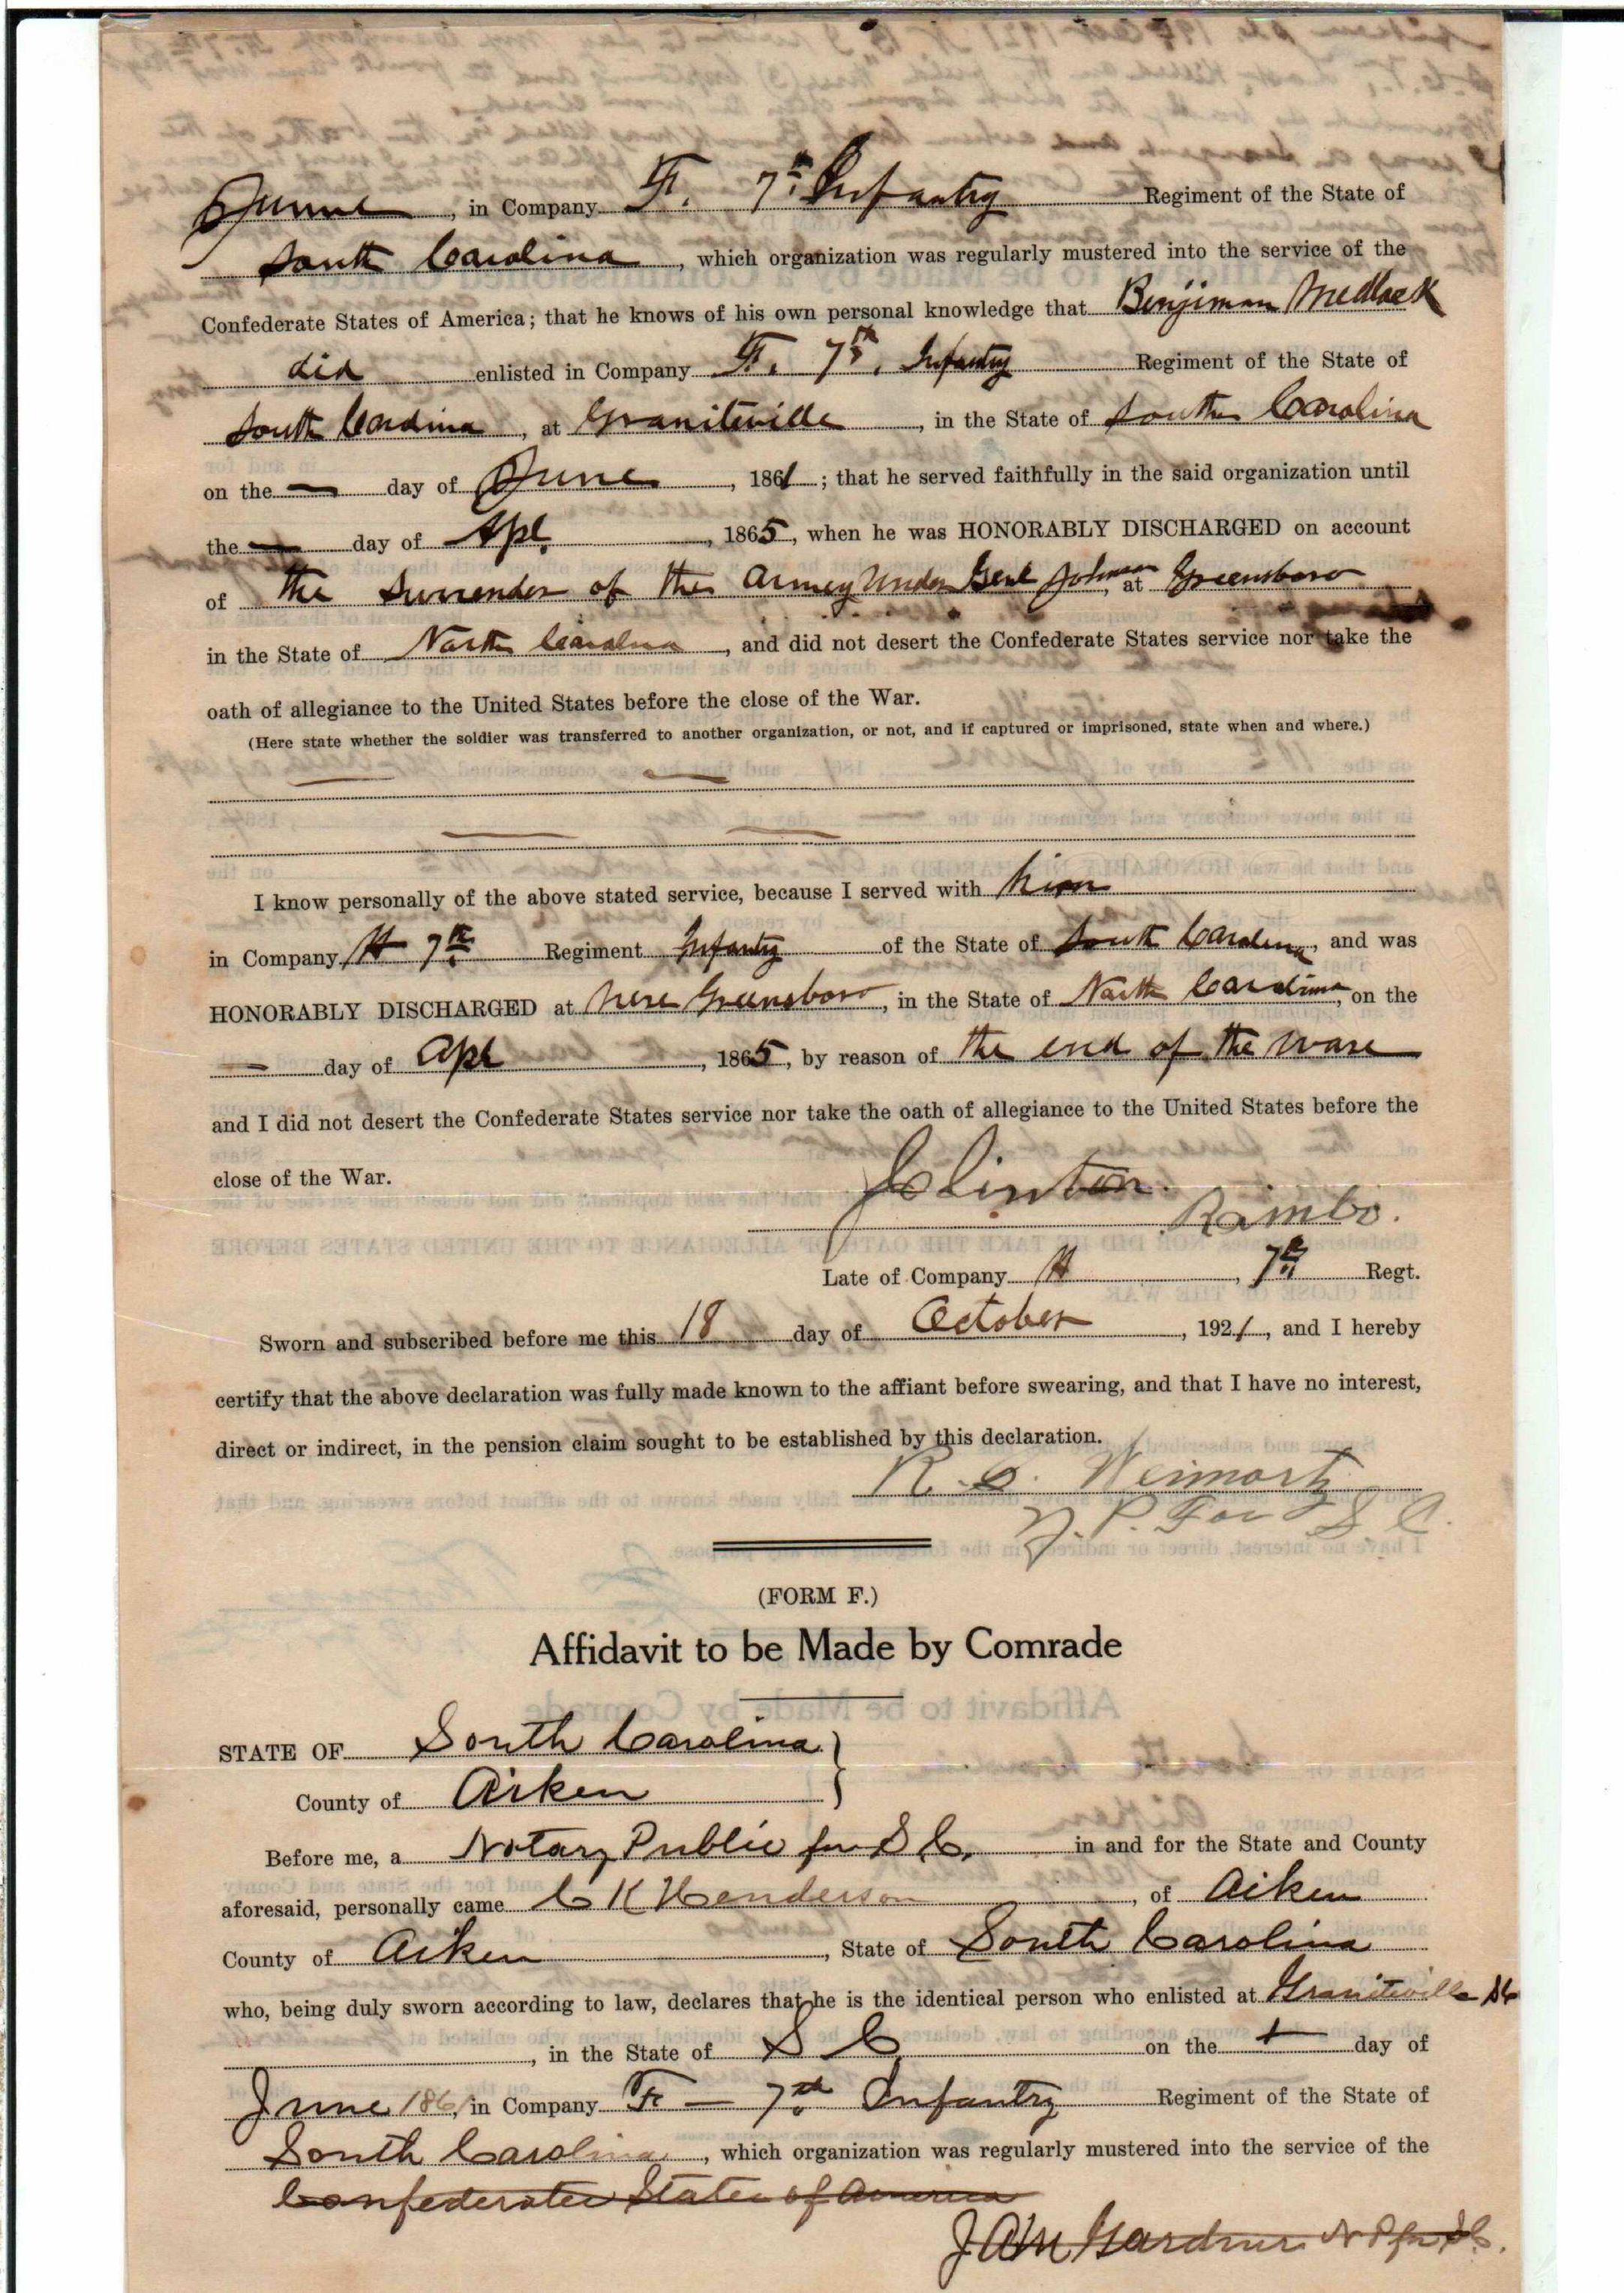 June, in Company F. 7th Infantry Regiment of the State of
South Carolina, which organization was regularly mustered into the service of the
Confederate States of America; that he knows of his own personal knowledge that Benjiman Medlock
did enlisted in Company F. 7th. Infantry Regiment of the State of
South Carolina, at Graniteville, in the State of South Carolina
on the — day of June, 1861; that he served faithfully in the said organization until
the — day of Apl, 1865, when he was HONORABLY DISCHARGED on account
of the Surrender of the Armey Under Genl, at Greensboro
in the State of North Carolina, and did not desert the Confederate States service nor take the
oath of allegiance to the United States before the close of the War.
(Here state whether the soldier was transferred to another organization, or not, and if captured or imprisoned, state when and where.)
I know personally of the above stated service, because I served with him
in Company H 7th Regiment Infantry of the State of South Carolina, and was
HONORABLY DISCHARGED at nere Greensboro, in the State of North Carolina, on the
— day of Apl, 1865, by reason of the end of the ware
and I did not desert the Confederate States service nor take the oath of allegiance to the United States before the
close of the War.
J Clinton.
Rambo.
Late of Company H, 7th Regt.
Sworn and subscribed before me this 18 day of October, 1921, and I hereby
certify that the above declaration was fully made known to the affiant before swearing, and that I have no interest,
direct or indirect, in the pension claim sought to be established by this declaration.
R. C. Weimortz
N. P. For S. C.
(FORM F.)
Affidavit to be Made by Comrade
STATE OF South Carolina
County of Aiken
Before me, a Notary Public for S C. in and for the State and County
aforesaid, personally came C K Henderson, of Aiken
County of Aiken, State of South Carolina
who, being duly sworn according to law, declares that he is the identical person who enlisted at Graniteville SC
, in the State of S C on the day of
June 1861, in Company F — 7th Infantry Regiment of the State of
South Carolina, which organization was regularly mustered into the service of the
Confederate States of America
Gardner N P for S C.